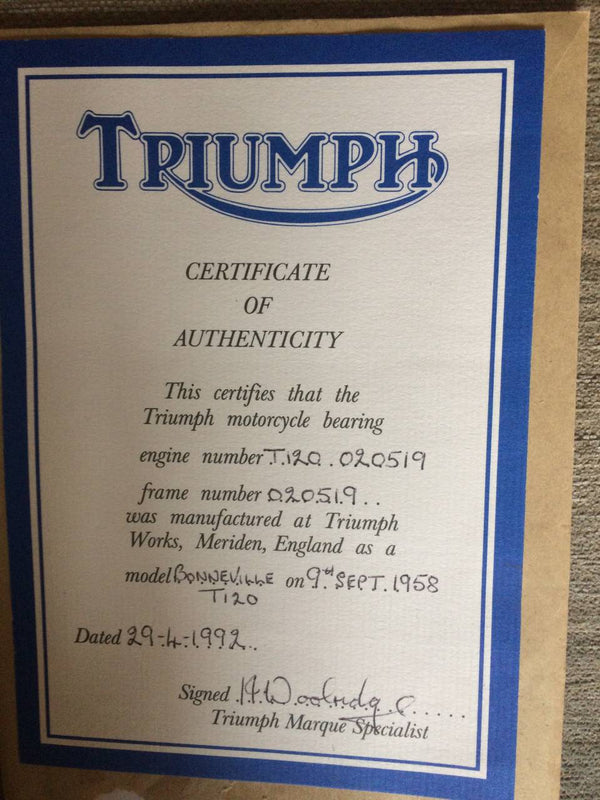 TRIUMPH
CERTIFICATE
OF
AUTHENTICITY
This certifies that the
Triumph motorcycle bearing
engine number T.120.020519
frame number 020519..
was manufactured at Triumph
Works, Meriden, England as a
model BONNEVILLE on 9th SEPT. 1958
T120
Dated 29-4-1992..
Signed H.Woolridge.....
Triumph Marque Specialist